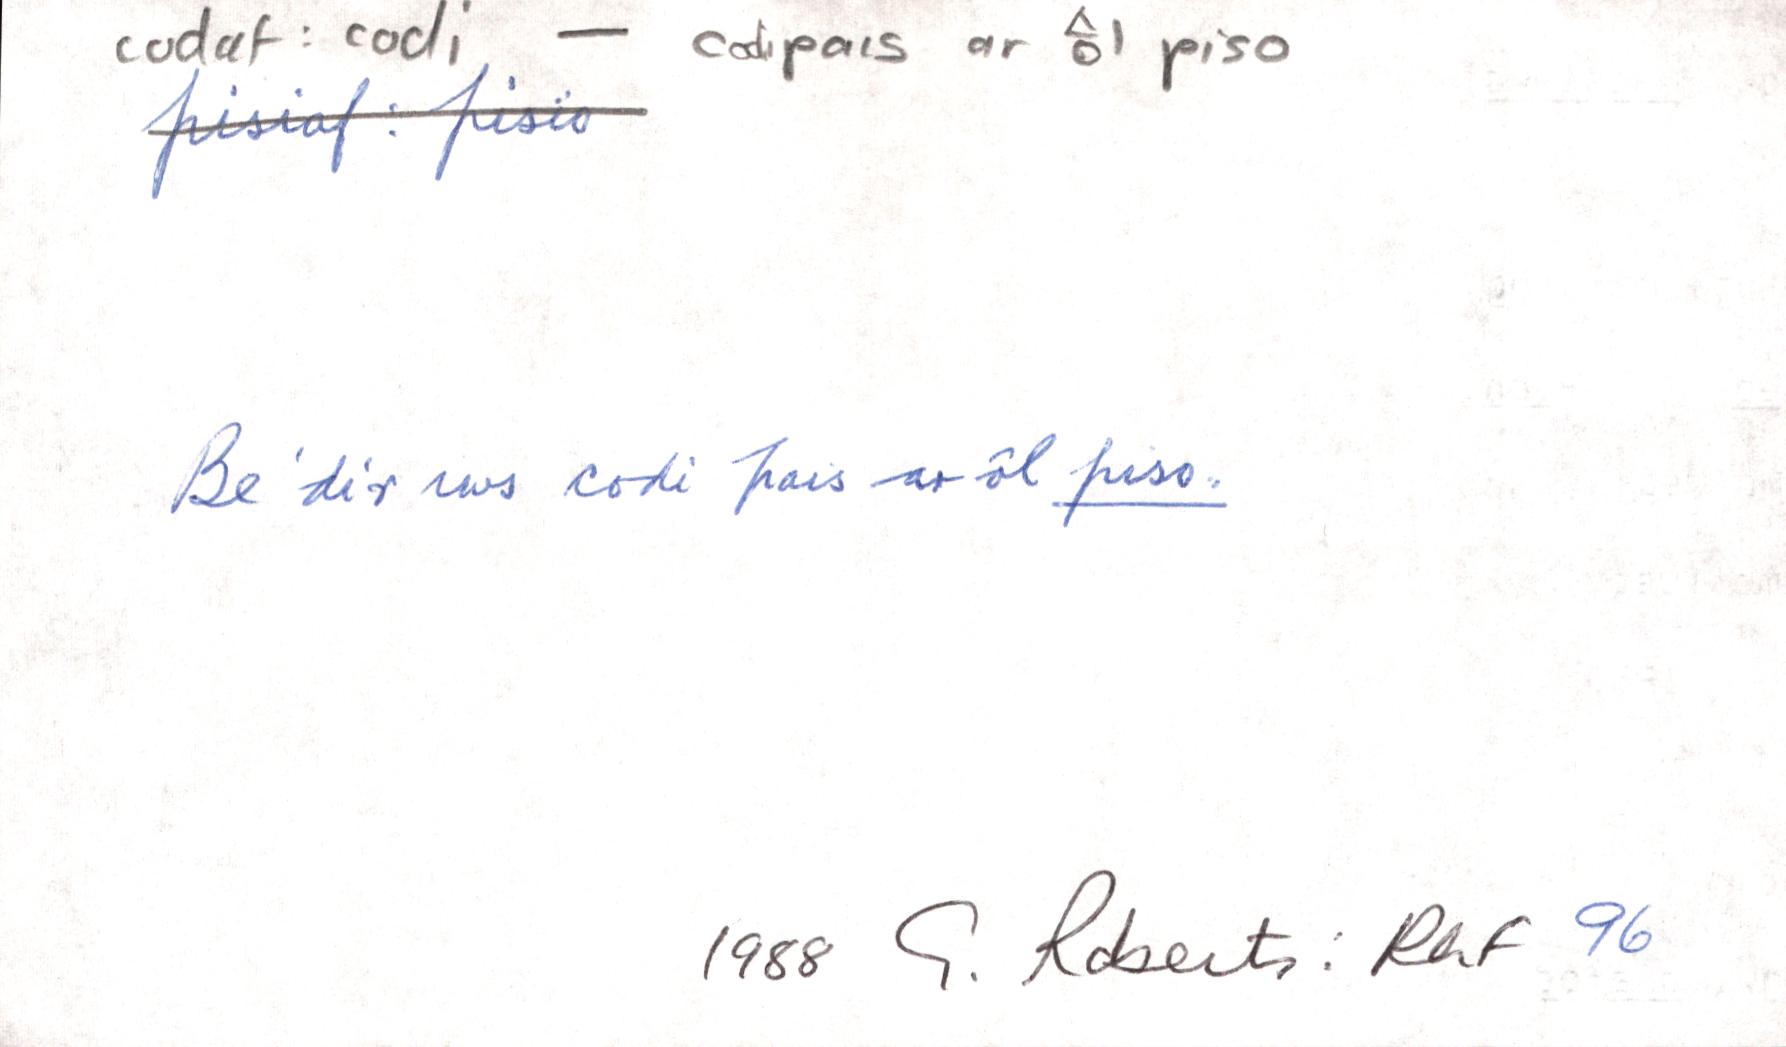 codaf: codi — codi pais ar ôl piso
pisiaf: pisio
Be 'dir iws codi pais ar ôl piso.
1988 G. Roberts: RhF 96